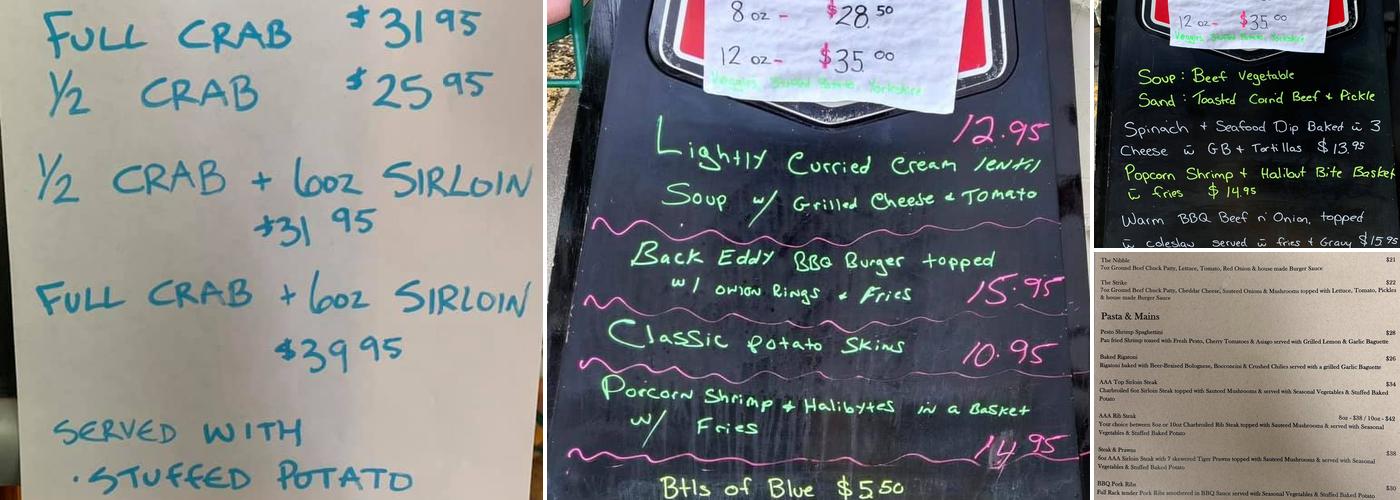 FULL CRAB $31 95
1/2 CRAB $25 95
1/2 CRAB + 6oz SIRLOIN
$31 95
FULL CRAB + 6oz SIRLOIN
$39 95
SERVED WITH
· STUFFED POTATO
8 oz - $28.50
12 oz - $35.00
Veggies, Stuffed Potato, Yorkshire
12.95
Lightly Curried Cream lentil
Soup w/ Grilled Cheese & Tomato
Back Eddy BBQ Burger topped
w/ onion Rings & Fries 15.95
Classic Potato Skins 10.95
Porcorn Shrimp & Halibytes in a Basket
w/ Fries
14.95
Btls of Blue $5.50
12 oz - $35.00
Veggies, Stuffed Potato, Yorkshire
Soup : Beef Vegetable
Sand : Toasted Corn'd Beef + Pickle
Spinach + Seafood Dip Baked w̄ 3
Cheese w̄ GB + Tortillas $13.95
Popcorn Shrimp + Halibut Bite Basket
w̄ fries $14.95
Warm BBQ Beef n' Onion, topped
w̄ coleslaw served w̄ fries + Gravy $15.95
The Nibble $21
7oz Ground Beef Chuck Patty, Lettuce, Tomato, Red Onion & house made Burger Sauce
The Strike $22
7oz Ground Beef Chuck Patty, Cheddar Cheese, Sauteed Onions & Mushrooms topped with Lettuce, Tomato, Pickles
& house made Burger Sauce
Pasta & Mains
Pesto Shrimp Spaghettini $28
Pan fried Shrimp tossed with Fresh Pesto, Cherry Tomatoes & Asiago served with Grilled Lemon & Garlic Baguette
Baked Rigatoni $26
Rigatoni baked with Beer-Braised Bolognese, Bocconcini & Crushed Chilies served with a grilled Garlic Baguette
AAA Top Sirloin Steak $34
Charbroiled 6oz Sirloin Steak topped with Sauteed Mushrooms & served with Seasonal Vegetables & Stuffed Baked
Potato
AAA Rib Steak 8oz - $38 / 10oz - $42
Your choice between 8oz or 10oz Charbroiled Rib Steak topped with Sauteed Mushrooms & served with Seasonal
Vegetables & Stuffed Baked Potato
Steak & Prawns $38
6oz AAA Sirloin Steak with 7 skewered Tiger Prawns topped with Sauteed Mushrooms & served with Seasonal
Vegetables & Stuffed Baked Potato
BBQ Pork Ribs $30
Full Rack tender Pork Ribs smothered in BBQ Sauce served with Seasonal Vegetables & Stuffed Baked Potato